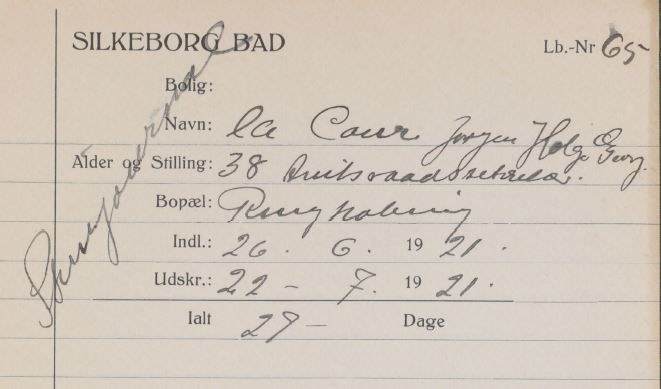 SILKEBORG BAD
Lb.-Nr 65
Bolig:
Navn: la Cour Jørgen Helge Georg
Alder og Stilling: 38 Amtsraadssekretær.
Bopæl: Ringkøbing
Indl.: 26. 6. 1921.
Udskr.: 22 - 7. 1921.
Ialt 27 - Dage